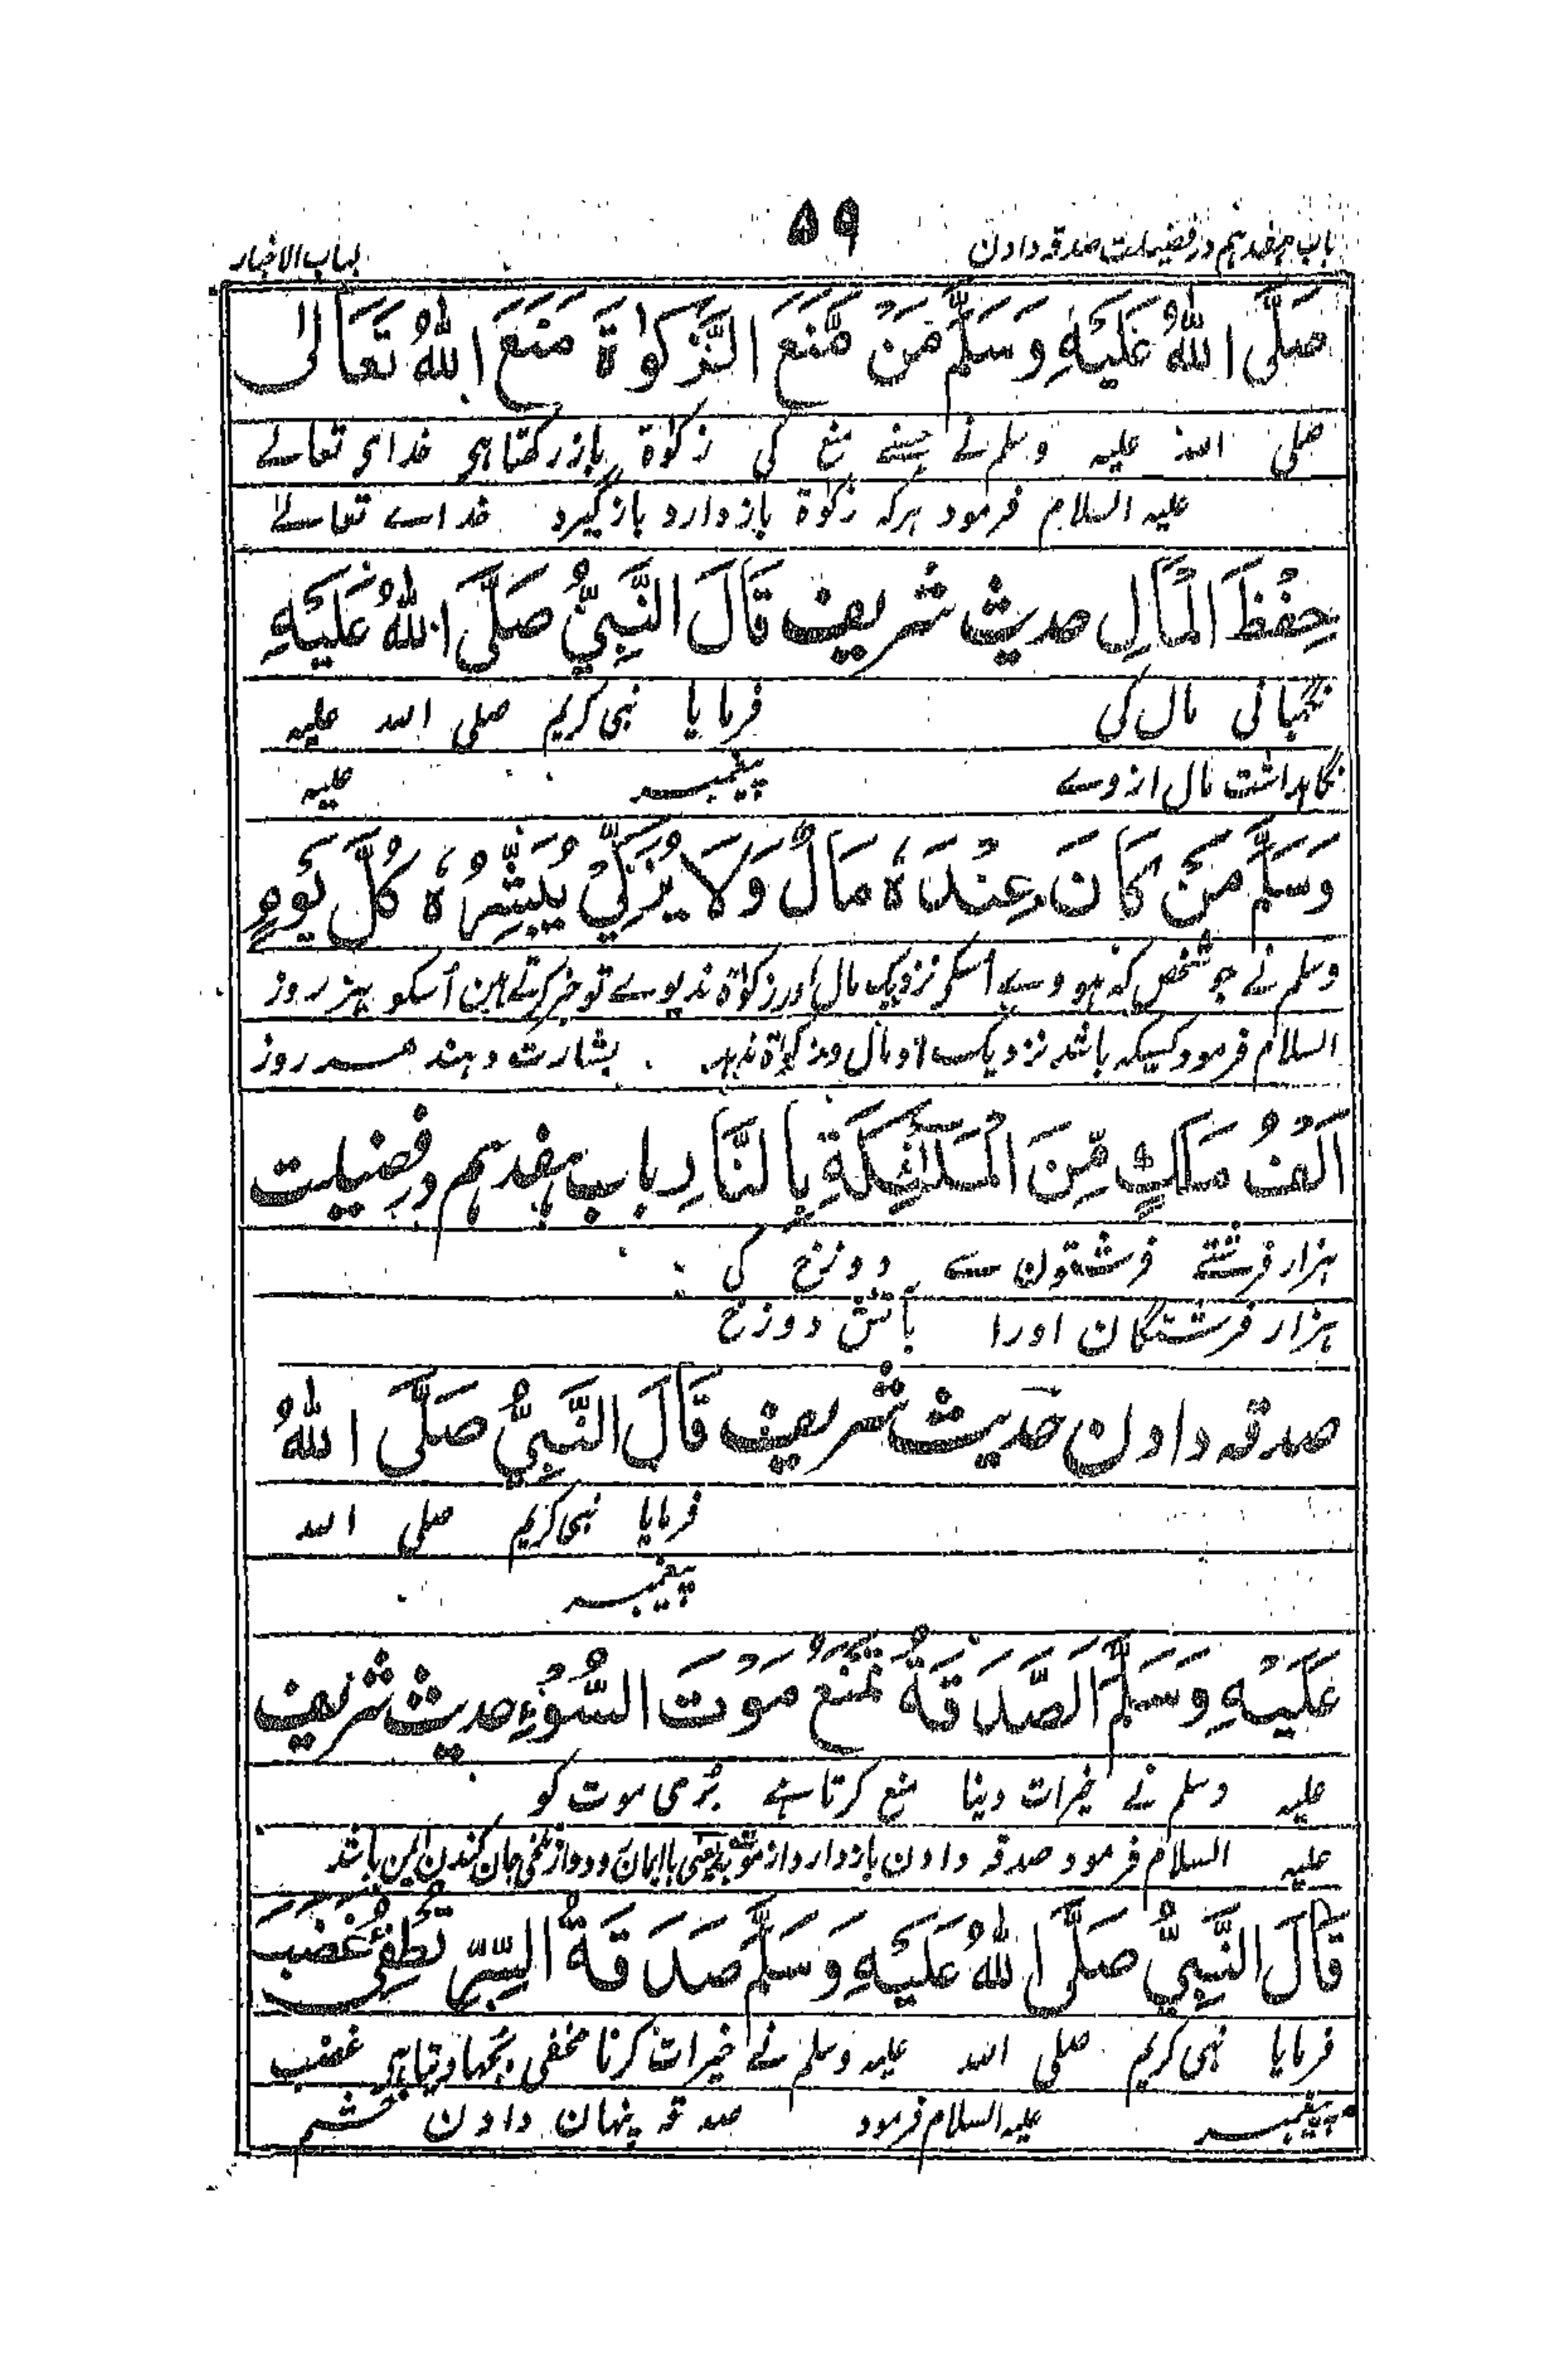 باب ہفدہم در فضیلت صدقہ دادن ۵۹ لباب الاخبار
صَلَّى اللّٰهُ عَلَيْهِ وَسَلَّمَ مَنْ مَّنَعَ الزَّكٰوةَ مَنَعَ اللّٰهُ تَعَالٰى
صلی اللہ علیہ وسلم نے جسنے منع کی زکوٰۃ بازرکھتا ہی خدای تعالے
علیہ السلام فرمود ہرکہ زکوٰۃ باز دارد باز گیرد خداے تعالےٰ
حِفْظَ الْمَالِ حدیث شریف قَالَ النَّبِيُّ صَلَّى اللّٰهُ عَلَيْهِ
نگہبانی مال کی فرمایا نبی کریم صلی اللہ علیہ
نگاہداشت مال از وے پیغمبر علیہ
وَسَلَّمَ مَنْ كَانَ عِنْدَهٗ مَالٌ وَلَا يُزَكِّيْ يُبَشِّرُهٗ كُلَّ يَوْمٍ
وسلم نے جو شخص کہ ہووے اسکے نزدیک مال اور زکوٰۃ ندیوے تو خبر کرتے ہین اُسکو ہر روز
السلام فرمود کسیکہ باشد نزدیک او مال و زکوٰۃ ندہد بشارت دہند ہر روز
اَلْفُ مَلَكٍ مِّنَ الْمَلٰٓئِكَةِ بِالنَّارِ باب ہفدہم در فضیلت
ہزار فرشتے فرشتون سے دوزخ کی
ہزار فرشتگان اورا بآتش دوزخ
صدقہ دادن حدیث شریف قَالَ النَّبِيُّ صَلَّى اللّٰهُ
فرمایا نبی کریم صلی اللہ
پیغمبر
عَلَيْهِ وَسَلَّمَ اَلصَّدَقَةُ تَمْنَعُ مَوْتَ السُّوْءِ حدیث شریف
علیہ وسلم نے خیرات دینا منع کرتا ہے بُری موت کو
علیہ السلام فرمود صدقہ دادن باز دارد از موت بد یعنی با ایمان رود و از تلخی جان کندن ایمن باشد
قَالَ النَّبِيُّ صَلَّى اللّٰهُ عَلَيْهِ وَسَلَّمَ صَدَقَةُ السِّرِّ تُطْفِئُ غَضَبَ
فرمایا نبی کریم صلی اللہ علیہ وسلم نے خیرات کرنا مخفی بُجھا دیتا ہی غضب
پیغمبر علیہ السلام فرمود صدقہ پنہان دادن خشم